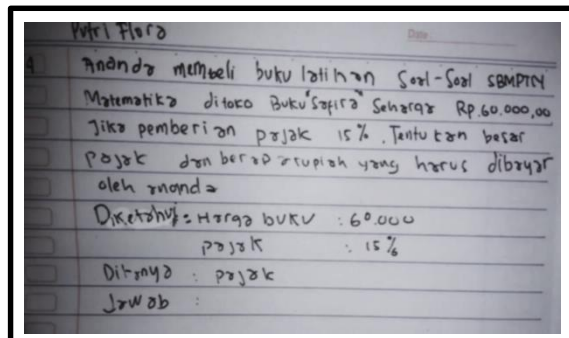 Putri Flora
Date:
4 Ananda membeli buku latihan Soal-Soal SBMPTN
Matematika ditoko Buku "Safira" Seharga Rp.60.000,00
Jika pemberian pajak 15%, Tentukan besar
pajak dan berapa rupiah yang harus dibayar
oleh ananda
Diketahui = Harga buku : 60.000
pajak : 15%
Ditanya : pajak
Jawab :